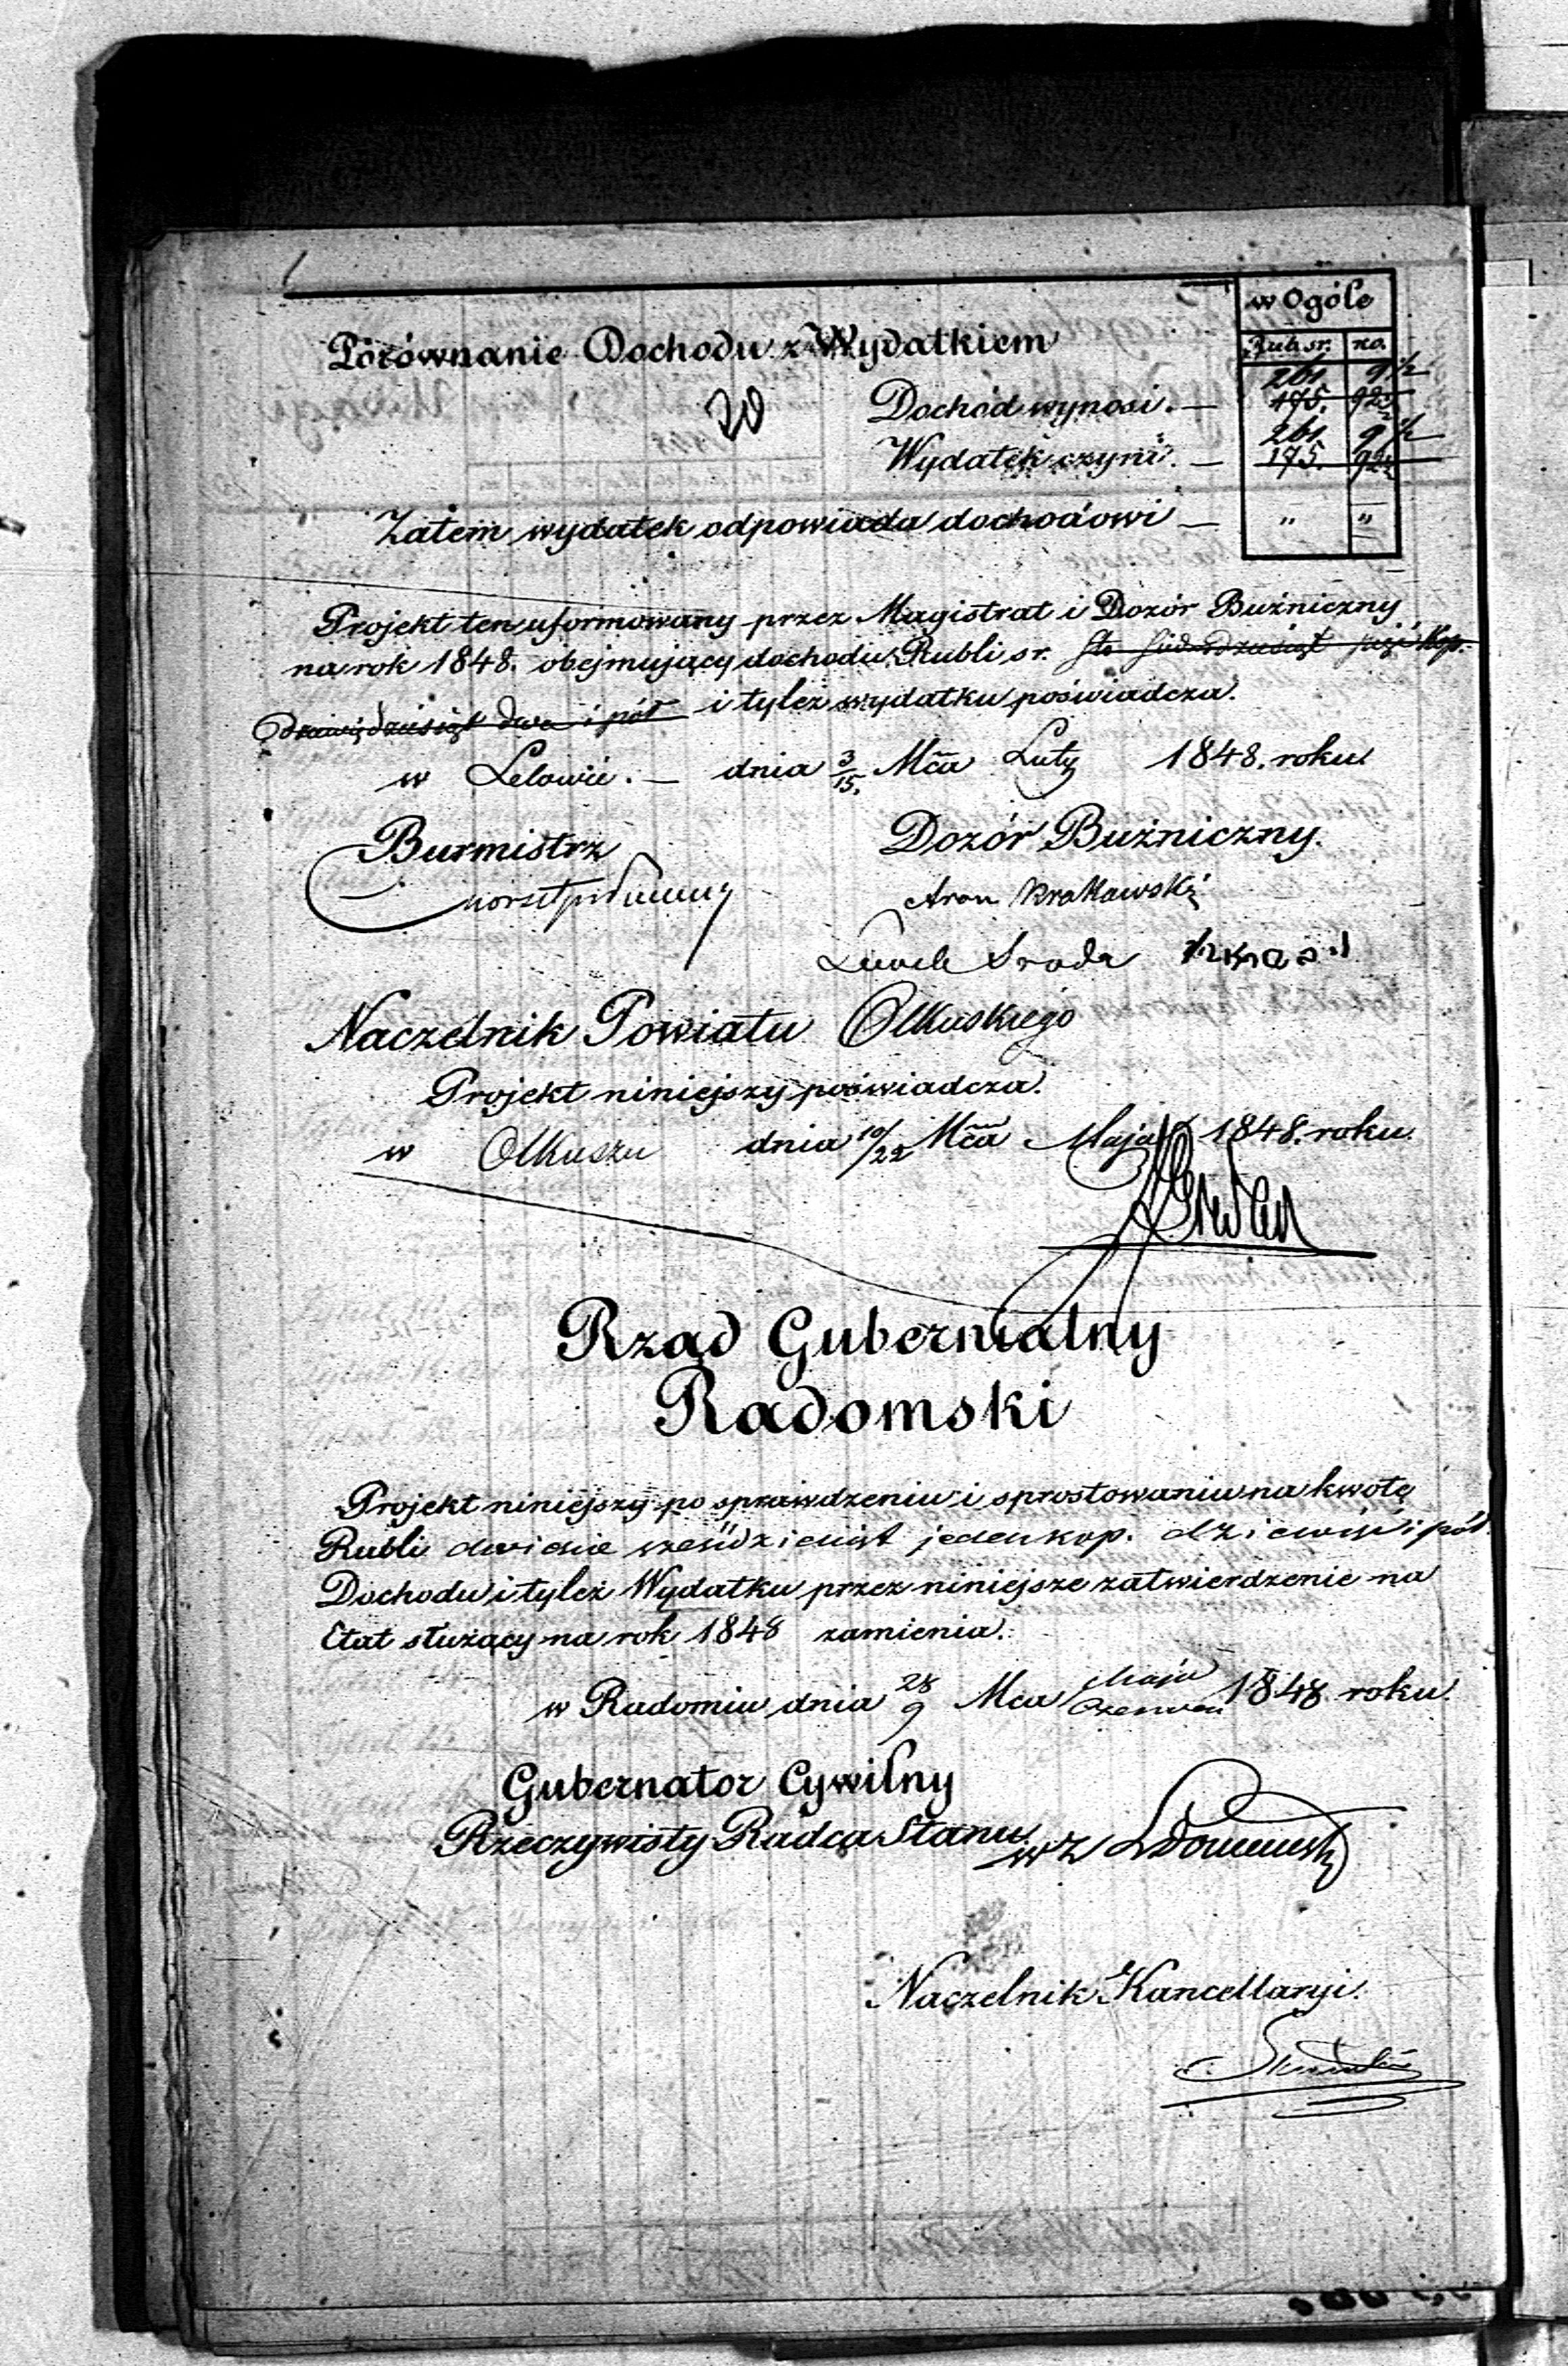 w Ogóle
Porównanie Dochodu z Wydatkiem
Rub. sr. ko.
261. 9 1/2
20 Dochód wynosi. — 175. 92 1/2
261. 9 1/2
Wydatek czyni. — 175. 92 1/2
Zatem wydatek odpowiada dochodowi — " "
Projekt ten uformowany przez Magistrat i Dozór Bużniczny
na rok 1848. obejmujący dochodu Rubli sr. sto siedmdziesiąt pięć kop.
dziewięćdziesiąt dwa i pół i tyleż wydatku poświadcza.
w Lelowie. — dnia 3/15. Mca Luty 1848. roku
Burmistrz Dozór Bużniczny.
Aron Krakowski
Sroda
Naczelnik Powiatu Olkuskiego
Projekt niniejszy poświadcza.
w Olkuszu dnia 10/22 Mca Maja 1848. roku.
Rząd Gubernialny
Radomski
Projekt niniejszy po sprawdzeniu i sprostowaniu na kwotę
Rubli dwieście sześćdziesiąt jeden kop. dziewięć i pół
Dochodu i tyleż Wydatku przez niniejsze zatwierdzenie na
Etat służący na rok 1848 zamienia.
w Radomiu dnia 28/9 Mca Maja/Czerwca 1848 roku.
Gubernator Cywilny
Rzeczywisty Radca Stanu
w z
Naczelnik Kancellaryi.